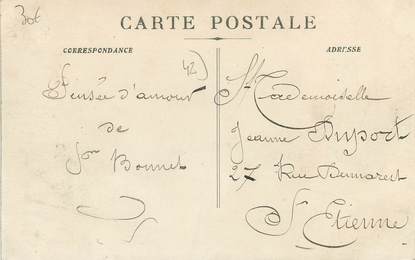 30t
CARTE POSTALE
CORRESPONDANCE
ADRESSE
42)
Pensée d'amour
de
Bonnet
Mademoiselle
Jeanne Duport
27 Rue Desmarest
St Etienne